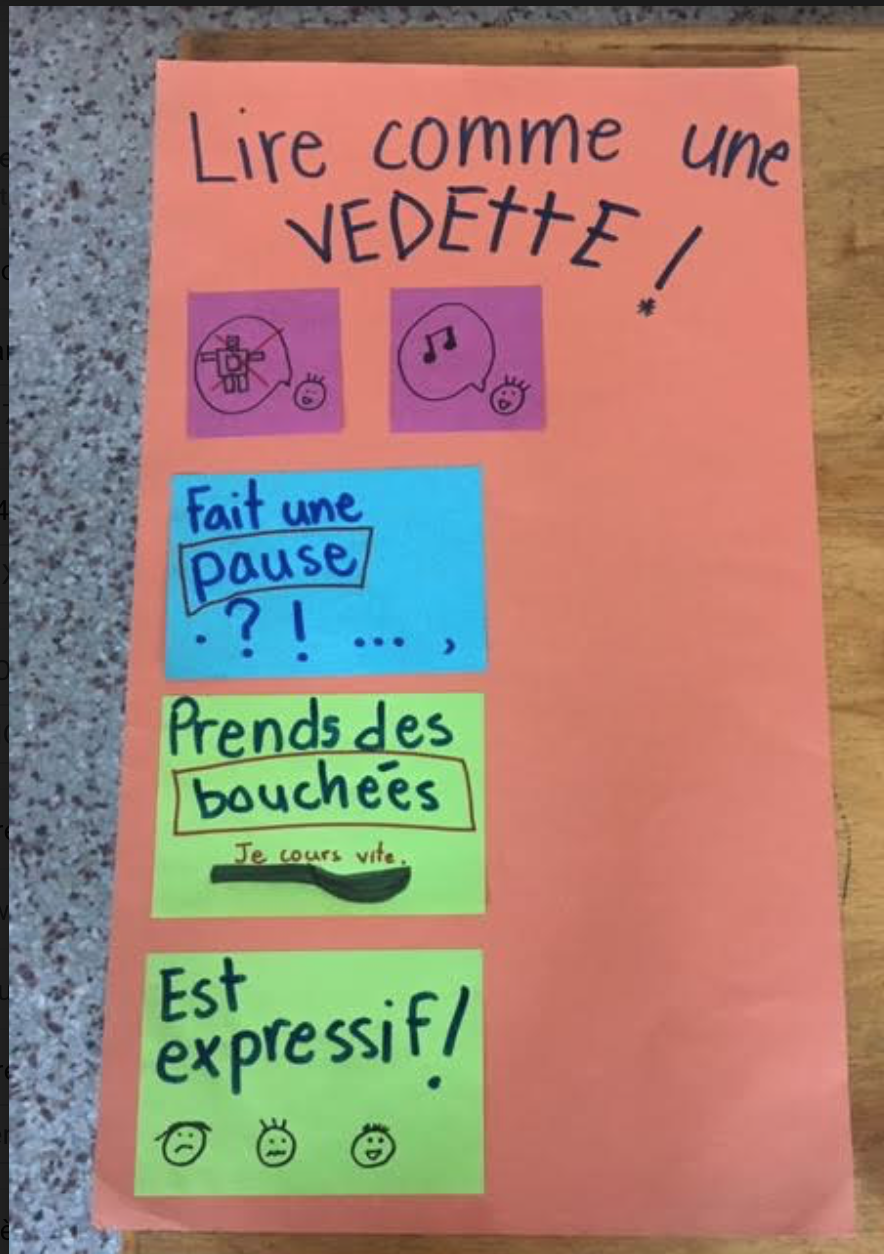 Lire comme une
VEDEttE !
Fait une
pause
. ? ! ... ,
Prends des
bouchées
Je cours vite.
Est
expressif!